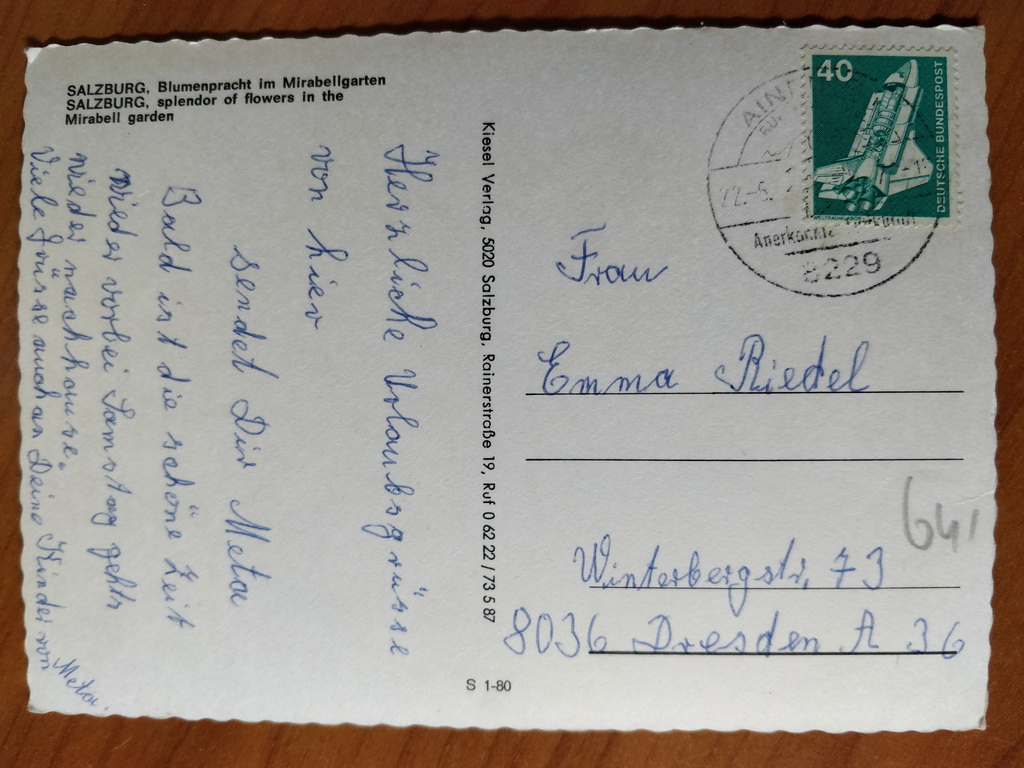 SALZBURG, Blumenpracht im Mirabellgarten
SALZBURG, splendor of flowers in the
Mirabell garden
Herzliche Urlaubsgrüsse
von hier
sendet Dir Meta
Bald ist die schöne Zeit
wieder vorbei Samstag gehts
wieder nach hause.
Viele Grüsse auch an Deine Kinder von
Meta.
Kiesel Verlag, 5020 Salzburg, Rainerstraße 19, Ruf 0 62 22 / 73 5 87
S 1-80
40
DEUTSCHE BUNDESPOST
AIN
22.-5.
Anerkannt
8229
Frau
Emma Riedel
Winterbergstr. 73
8036 Dresden A 36
641